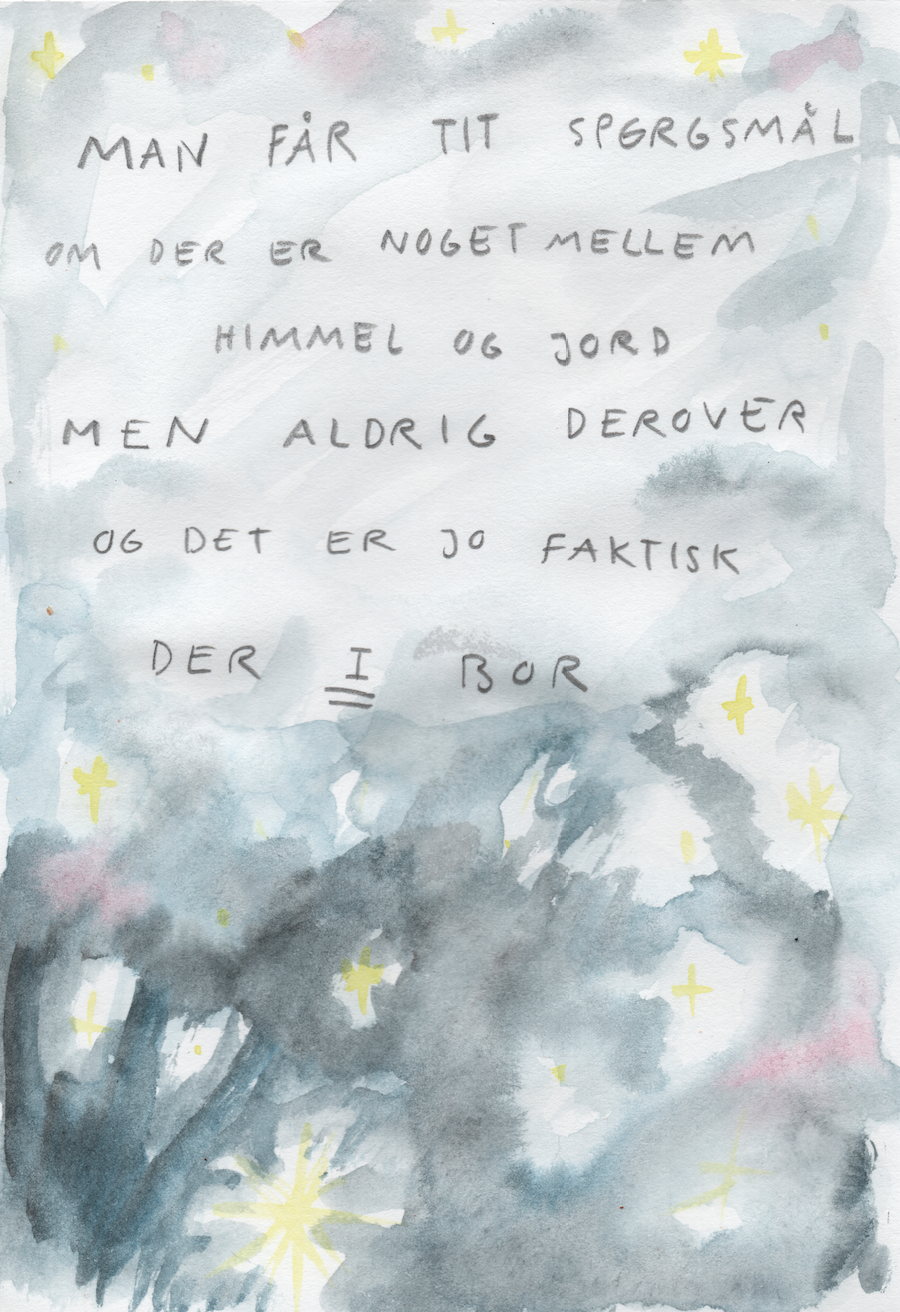 MAN FÅR TIT SPGRGSMÅL
OM DER ER NOGET MELLEM
HIMMEL OG JORD
MEN ALDRIG DEROVER
OG DET ER JO FAKTISK
DER I BOR